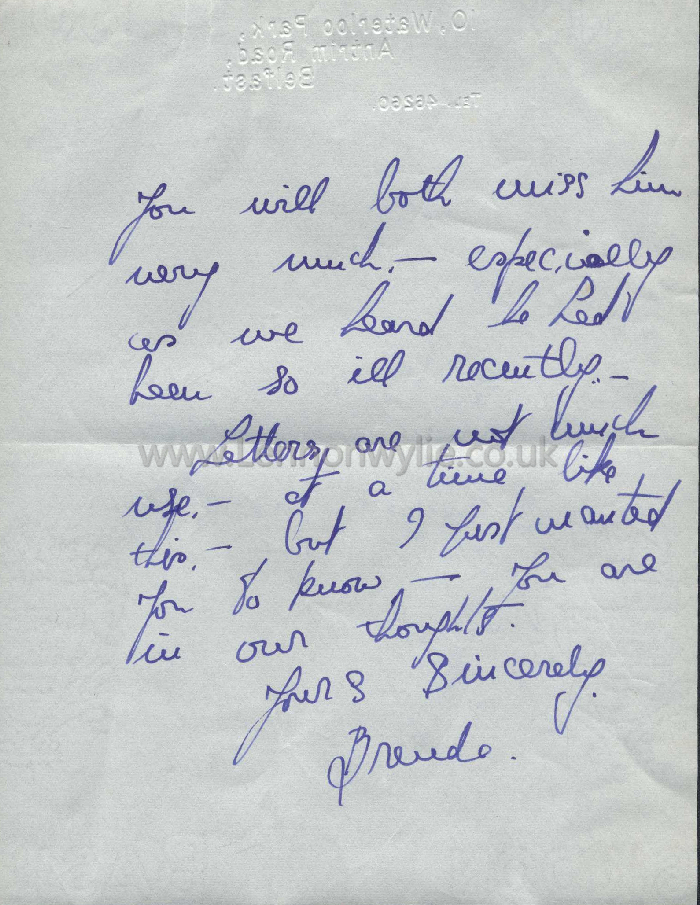 10, Waterloo Park,
Antrim Road,
Belfast.
TEL. 46260.
You will both miss him
very much. — especially
as we heard he had
been so ill recently. —
Letters, are not much
www.Lennonwylie.co.uk
use. — at a time like
this. — but I just wanted
you to know — You are
in our thoughts.
Yours Sincerely.
Brenda.